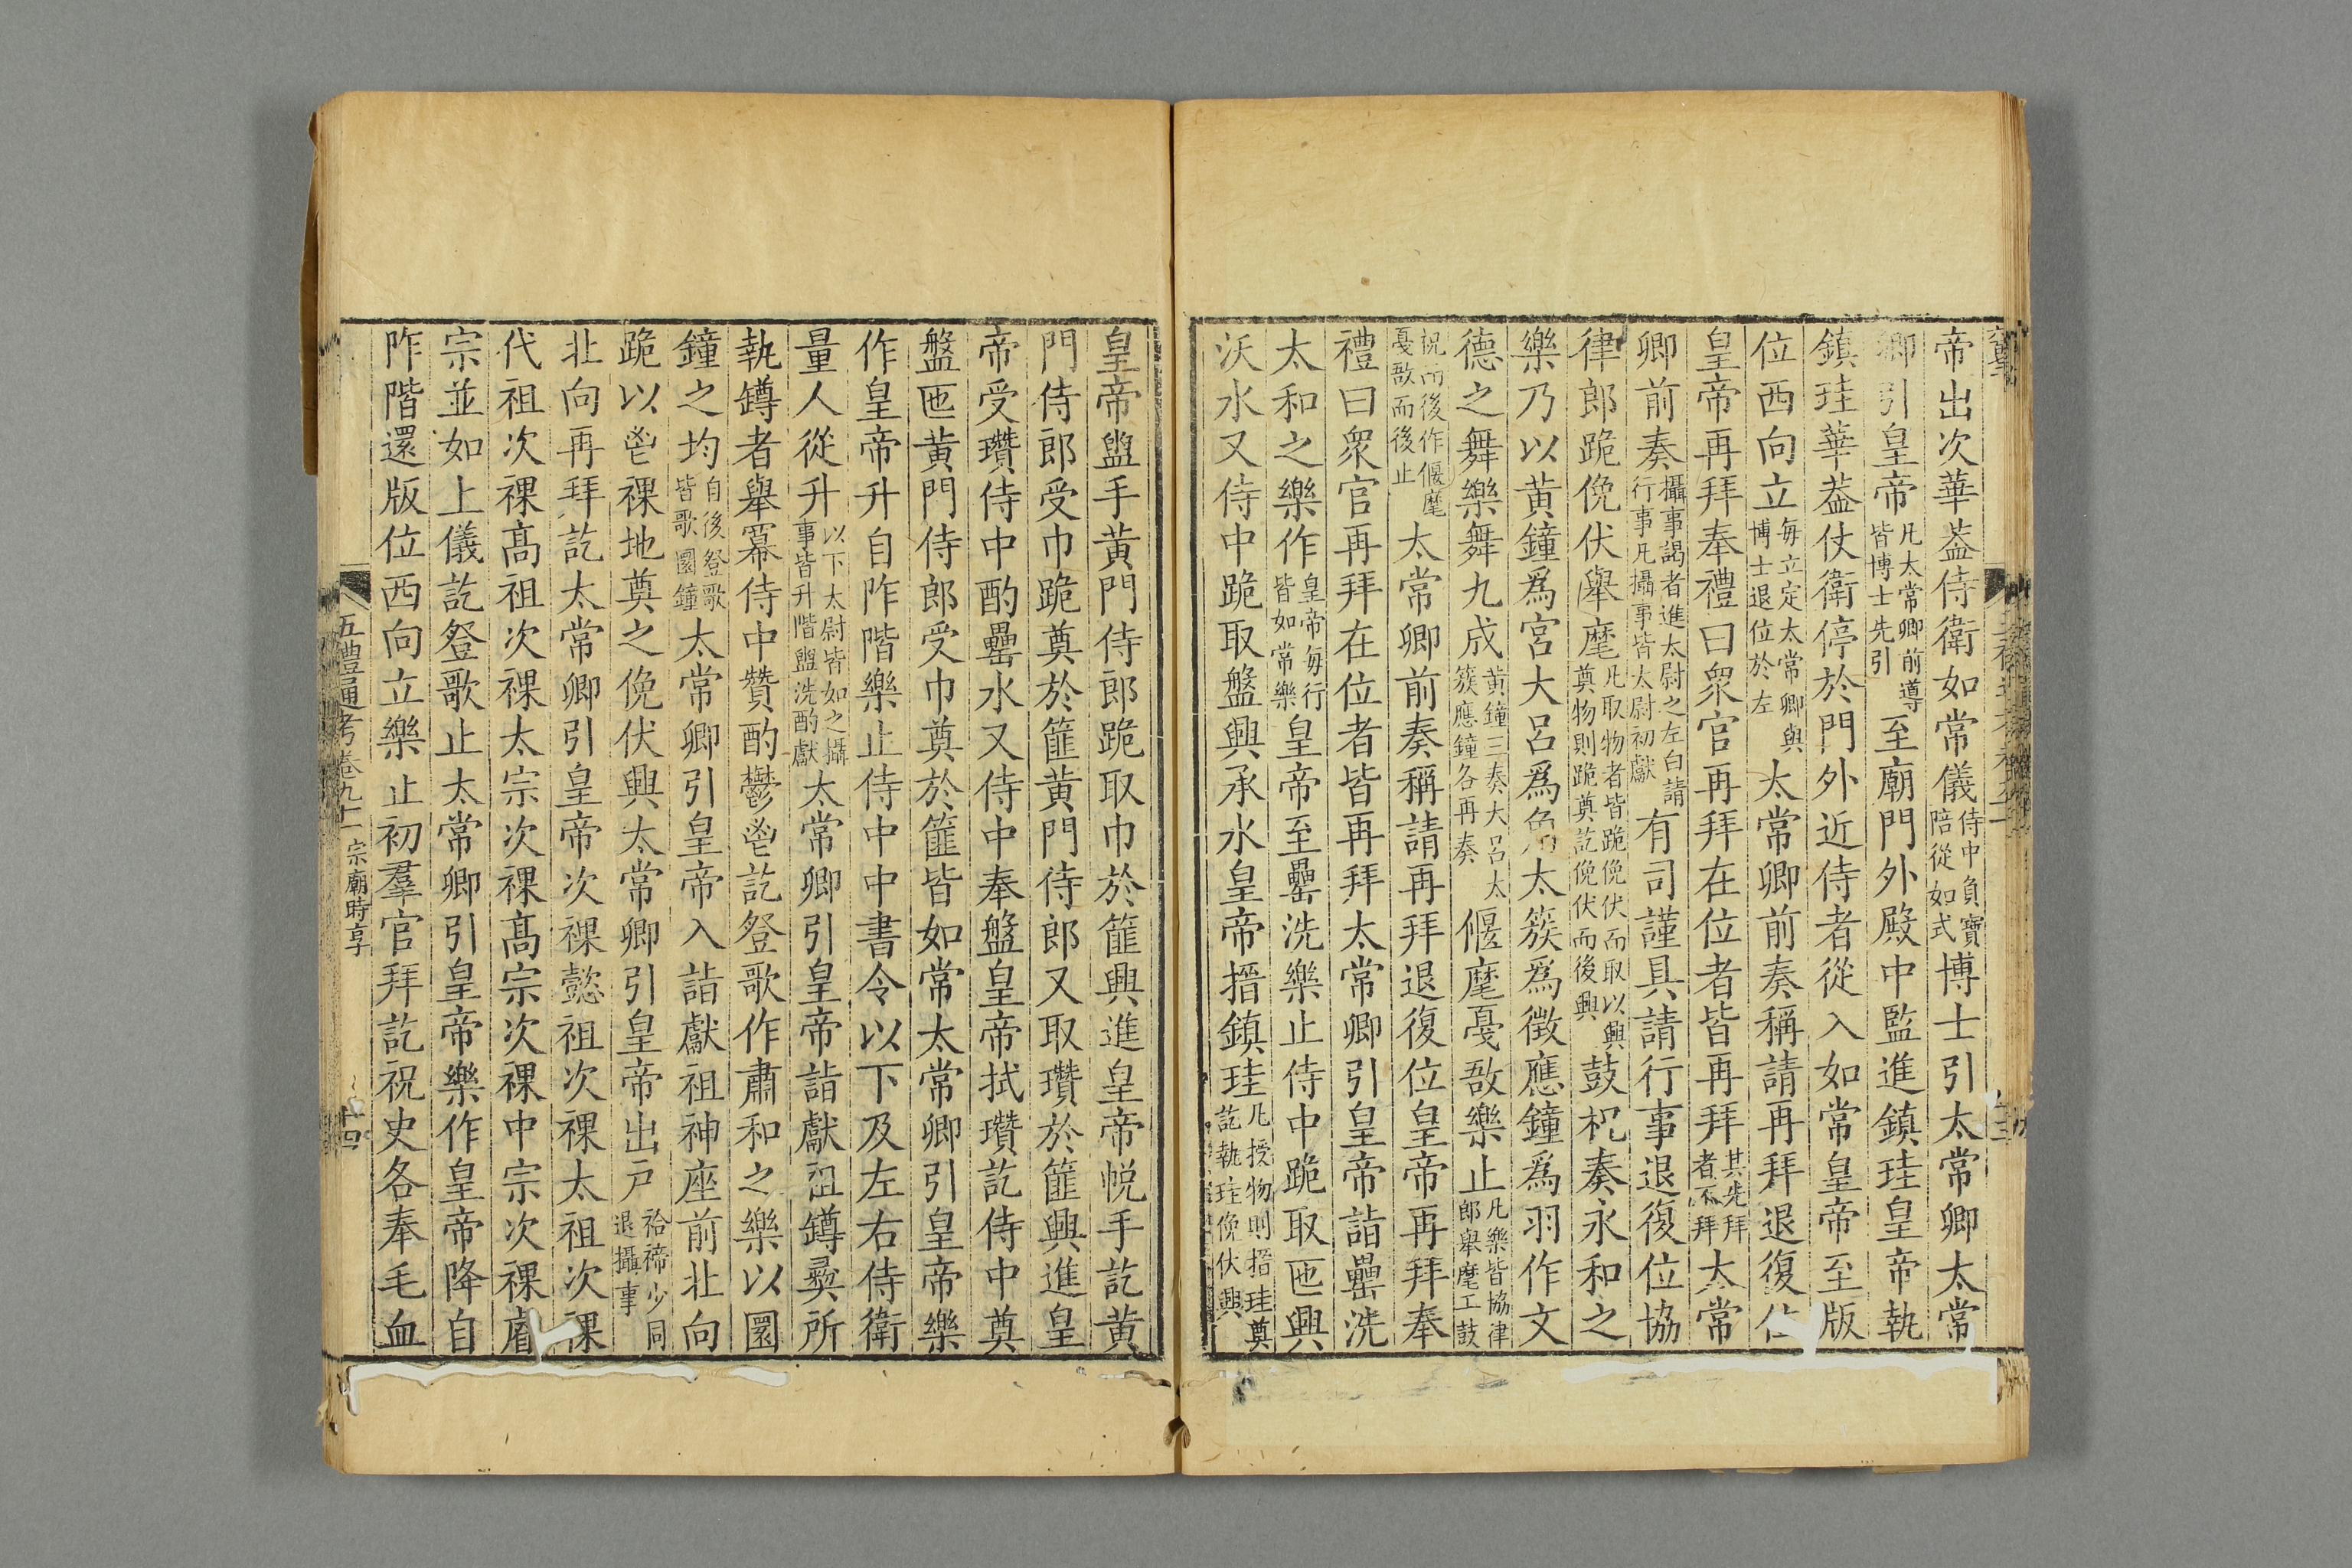 帝出次華葢侍衛如常儀侍中負寶陪從如式博士引太常卿太常
卿引皇帝凡太常卿前導皆博士先引至廟門外殿中監進鎮珪皇帝執
鎮珪華葢仗衛停於門外近侍者從入如常皇帝至版
位西向立每立定太常卿與博士退位於左太常卿前奏稱請再拜退復位
皇帝再拜奉禮曰眾官再拜在位者皆再拜其先拜者不拜太常
卿前奏攝事謁者進太尉之左白請行事凡攝事皆太尉初獻有司謹具請行事退復位協
律郎跪俛伏舉麾凡取物者皆跪俛伏而取以興奠物則跪奠訖俛伏而後興鼓柷奏永和之
樂乃以黃鐘爲宮大呂爲角太簇爲徵應鐘爲羽作文
德之舞樂舞九成黃鐘三奏大呂太簇應鐘各再奏偃麾戞敔樂止凡樂皆協律郎舉麾工鼓
柷而後作偃麾戞敔而後止太常卿前奏稱請再拜退復位皇帝再拜奉
禮曰眾官再拜在位者皆再拜太常卿引皇帝詣罍洗
太和之樂作皇帝每行皆如常樂皇帝至罍洗樂止侍中跪取匜興
沃水又侍中跪取盤興承水皇帝搢鎮珪凡授物則搢珪奠訖執珪俛伏興
皇帝盥手黃門侍郎跪取巾於篚興進皇帝帨手訖黃
門侍郎受巾跪奠於篚黃門侍郎又取瓚於篚興進皇
帝受瓚侍中酌罍水又侍中奉盤皇帝拭瓚訖侍中奠
盤匜黃門侍郎受巾奠於篚皆如常太常卿引皇帝樂
作皇帝升自阼階樂止侍中中書令以下及左右侍衛
量人從升以下太尉皆如之攝事皆升階盥洗酌獻太常卿引皇帝詣獻祖罇彝所
執罇者舉羃侍中贊酌鬱鬯訖登歌作肅和之樂以圜
鐘之均自後登歌皆歌圜鐘太常卿引皇帝入詣獻祖神座前北向
跪以鬯祼地奠之俛伏興太常卿引皇帝出戶祫禘少同退攝事
北向再拜訖太常卿引皇帝次祼懿祖次祼太祖次祼
代祖次祼高祖次祼太宗次祼高宗次祼中宗次祼睿
宗並如上儀訖登歌止太常卿引皇帝樂作皇帝降自
阼階還版位西向立樂止初羣官拜訖祝史各奉毛血
五禮通考卷九十一 宗廟時享 十四